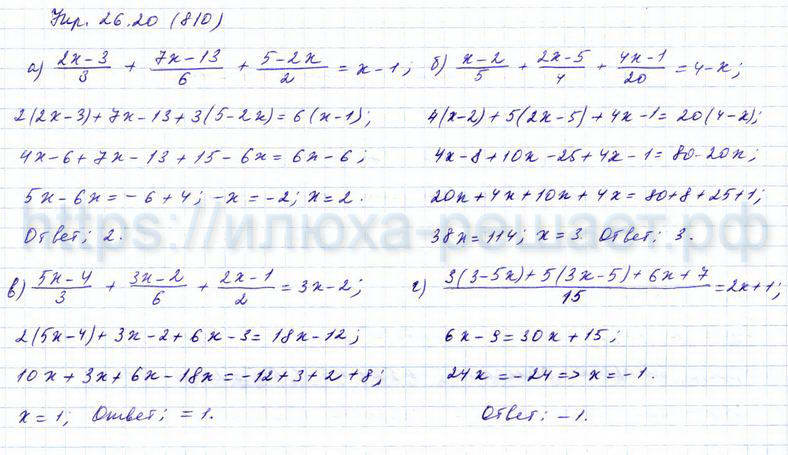 Упр. 26.20 (810)
а) (2x-3)/3 + (7x-13)/6 + (5-2x)/2 = x-1;
2(2x-3)+7x-13+3(5-2x)=6(x-1);
4x-6+7x-13+15-6x=6x-6;
5x-6x=-6+4; -x=-2; x=2.
Ответ: 2.
б) (x-2)/5 + (2x-5)/4 + (4x-1)/20 = 4-x;
4(x-2)+5(2x-5)+4x-1=20(4-x);
4x-8+10x-25+4x-1=80-20x;
20x+4x+10x+4x=80+8+25+1;
38x=114; x=3. Ответ: 3.
https://илюха-решает.рф
в) (5x-4)/3 + (3x-2)/6 + (2x-1)/2 = 3x-2;
2(5x-4)+3x-2+6x-3=18x-12;
10x+3x+6x-18x=-12+3+2+8;
x=1; Ответ: =1.
г) (3(3-5x)+5(3x-5)+6x+7)/15 = 2x+1;
6x-9=30x+15;
24x=-24=>x=-1.
Ответ: -1.